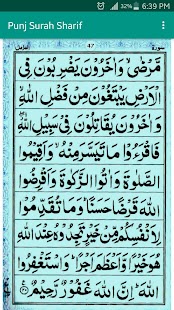 42% 6:39 PM
Punj Surah Sharif
سورة 47 المزمل
مَّرْضٰى وَاٰخَرُوْنَ يَضْرِبُوْنَ فِى
الْاَرْضِ يَبْتَغُوْنَ مِنْ فَضْلِ اللّٰهِ
وَاٰخَرُوْنَ يُقَاتِلُوْنَ فِىْ سَبِيْلِ اللّٰهِ
فَاقْرَءُوْا مَا تَيَسَّرَ مِنْهُ وَاَقِيْمُوا
الصَّلٰوةَ وَاٰتُوا الزَّكٰوةَ وَاَقْرِضُوا
اللّٰهَ قَرْضًا حَسَنًا وَمَا تُقَدِّمُوْا
لِاَنْفُسِكُمْ مِّنْ خَيْرٍ تَجِدُوْهُ عِنْدَ اللّٰهِ
هُوَ خَيْرًا وَّاَعْظَمَ اَجْرًا وَاسْتَغْفِرُوا
اللّٰهَ اِنَّ اللّٰهَ غَفُوْرٌ رَّحِيْمٌ